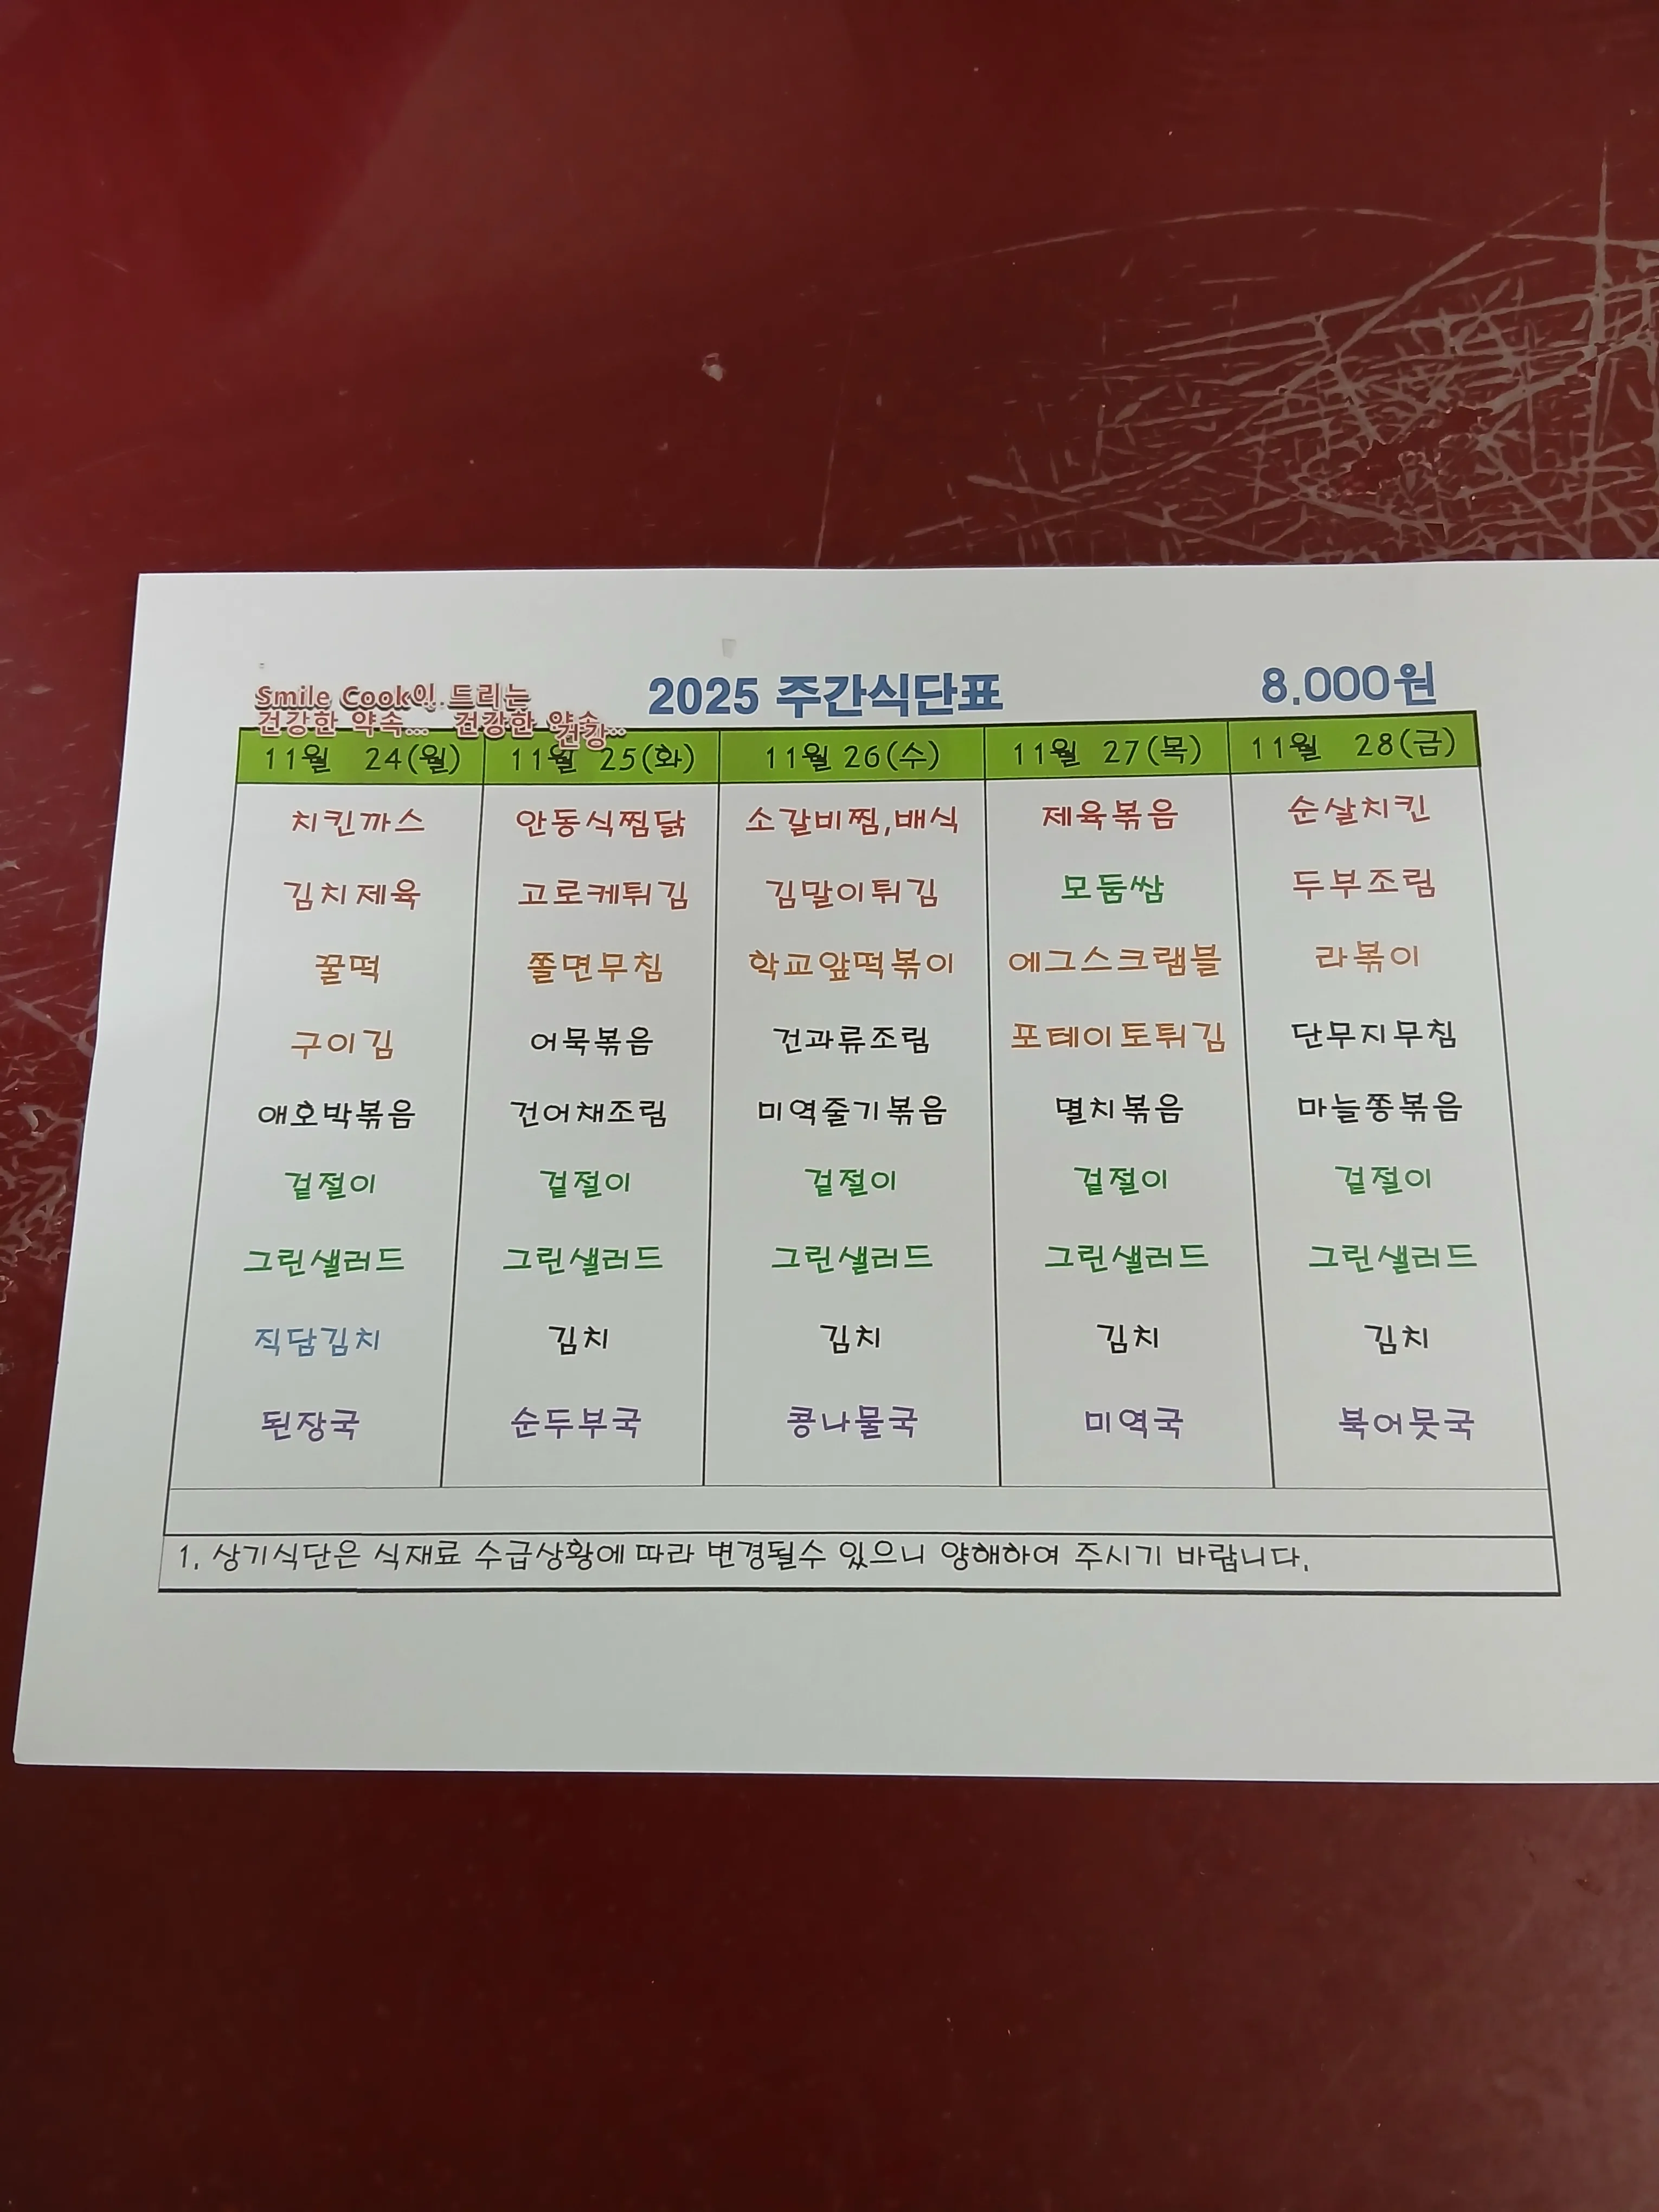 Smile Cook이 드리는
건강한 약속... 건강한 약속..
건강
2025 주간식단표
8.000원
11월 24(월) 11월 25(화) 11월 26(수) 11월 27(목) 11월 28(금)
치킨까스 안동식찜닭 소갈비찜,배식 제육볶음 순살치킨
김치제육 고로케튀김 김말이튀김 모둠쌈 두부조림
꿀떡 쫄면무침 학교앞떡볶이 에그스크램블 라볶이
구이김 어묵볶음 견과류조림 포테이토튀김 단무지무침
애호박볶음 건어채조림 미역줄기볶음 멸치볶음 마늘쫑볶음
겉절이 겉절이 겉절이 겉절이 겉절이
그린샐러드 그린샐러드 그린샐러드 그린샐러드 그린샐러드
직담김치 김치 김치 김치 김치
된장국 순두부국 콩나물국 미역국 북어뭇국
1. 상기식단은 식재료 수급상황에 따라 변경될수 있으니 양해하여 주시기 바랍니다.